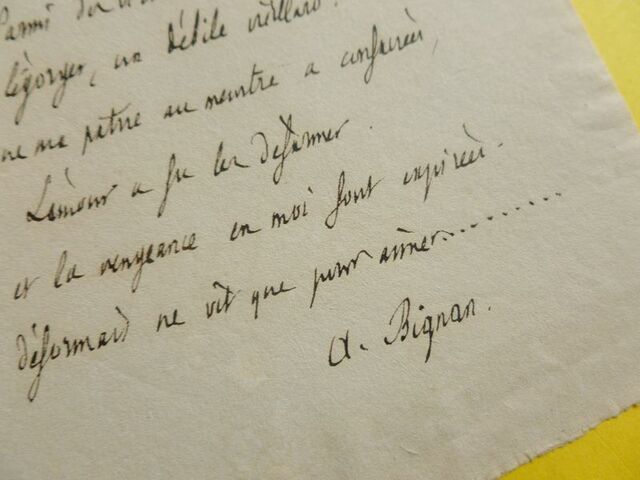 Parmi
l'égorger, un débile vieillard.
ne ma patrie au meurtre a consacrées,
L'amour a su les désarmer.
et la vengeance en moi sont expirées.
désormais ne vit que pour aimer.........
A. Bignan.